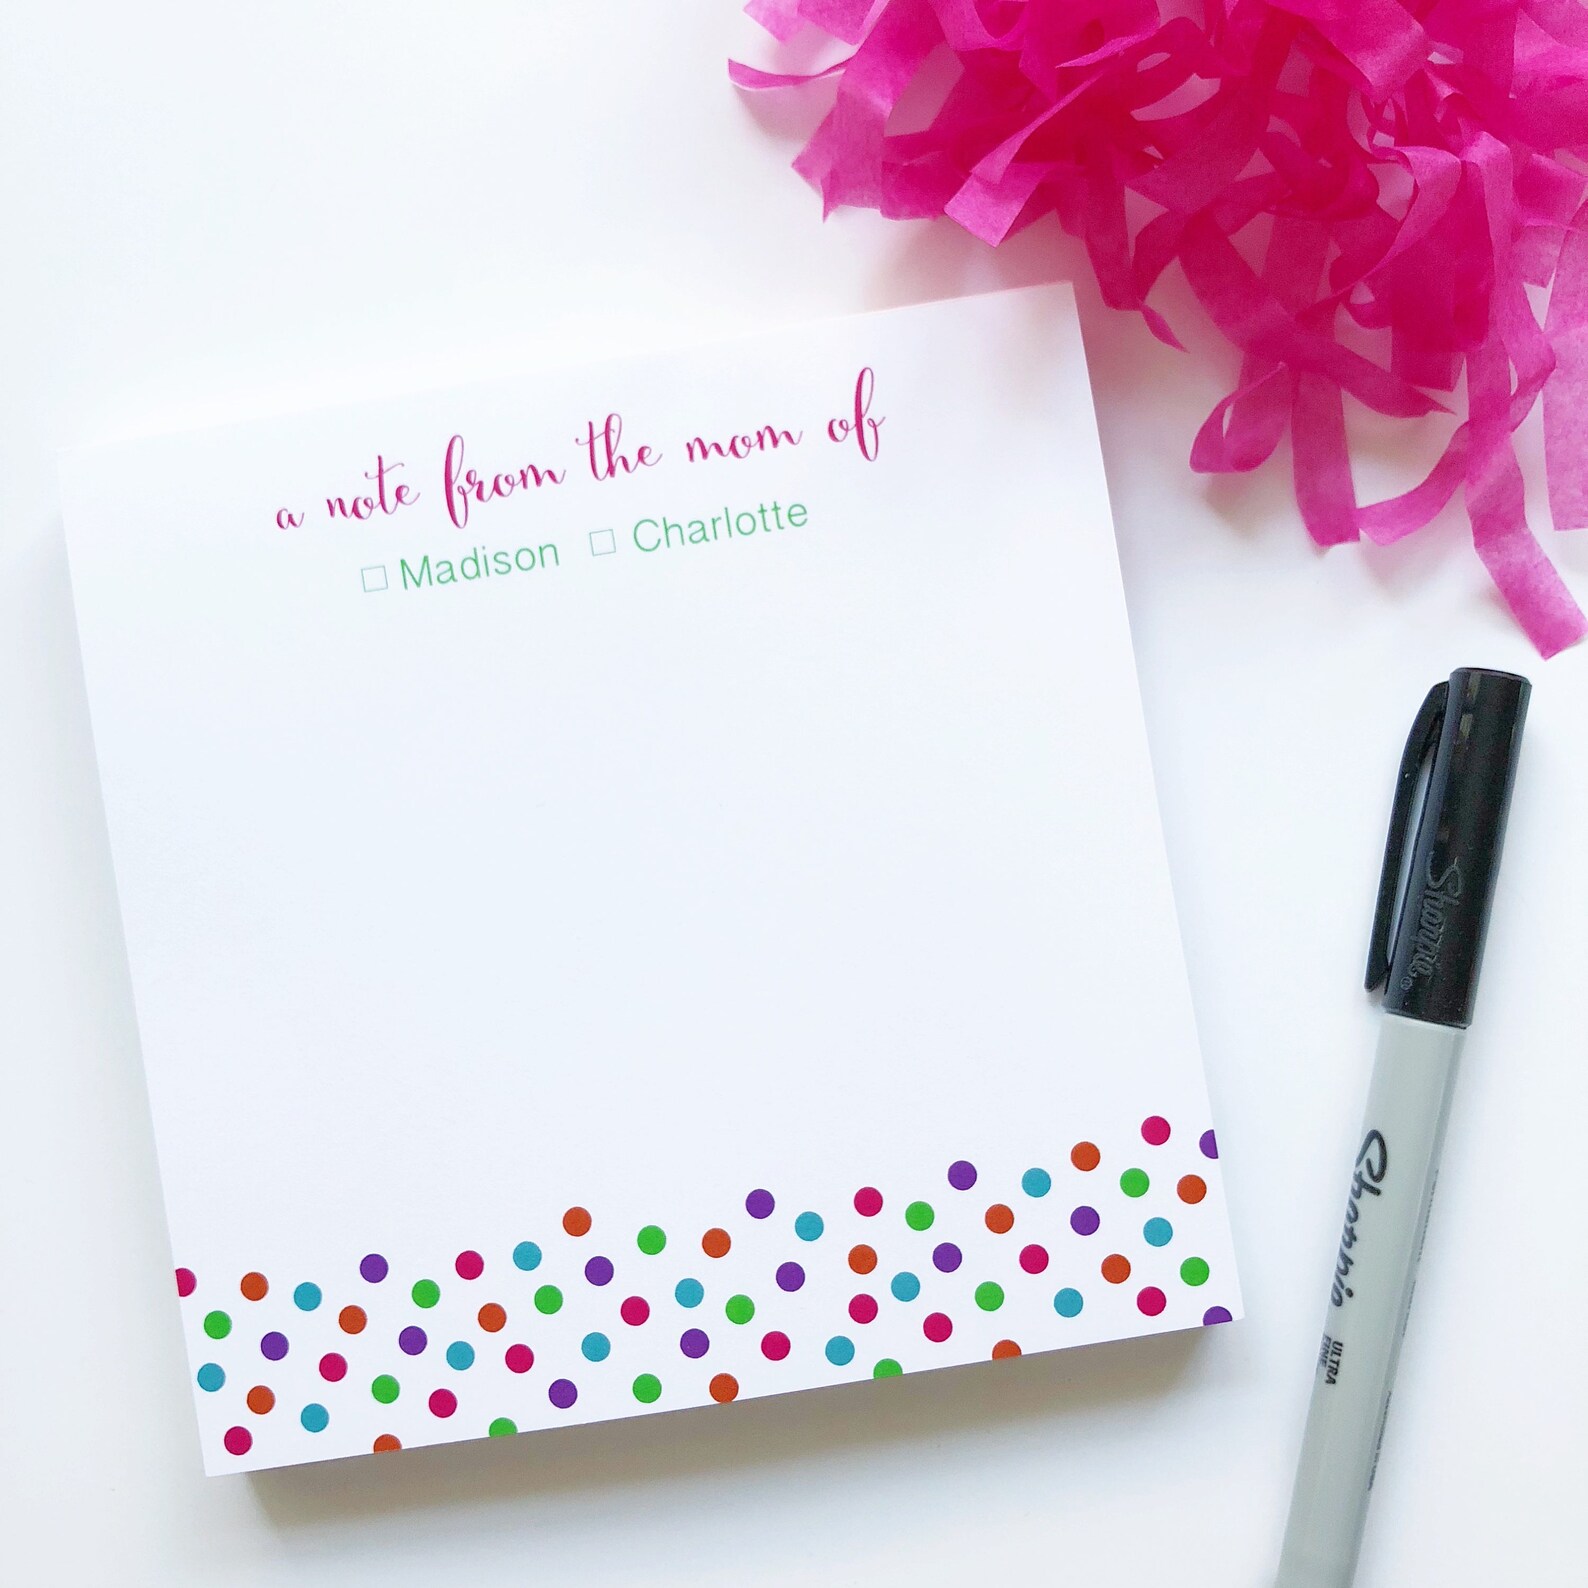 a note from the mom of
☐ Madison ☐ Charlotte
Sharpie®
Sharpie
ULTRA
FINE